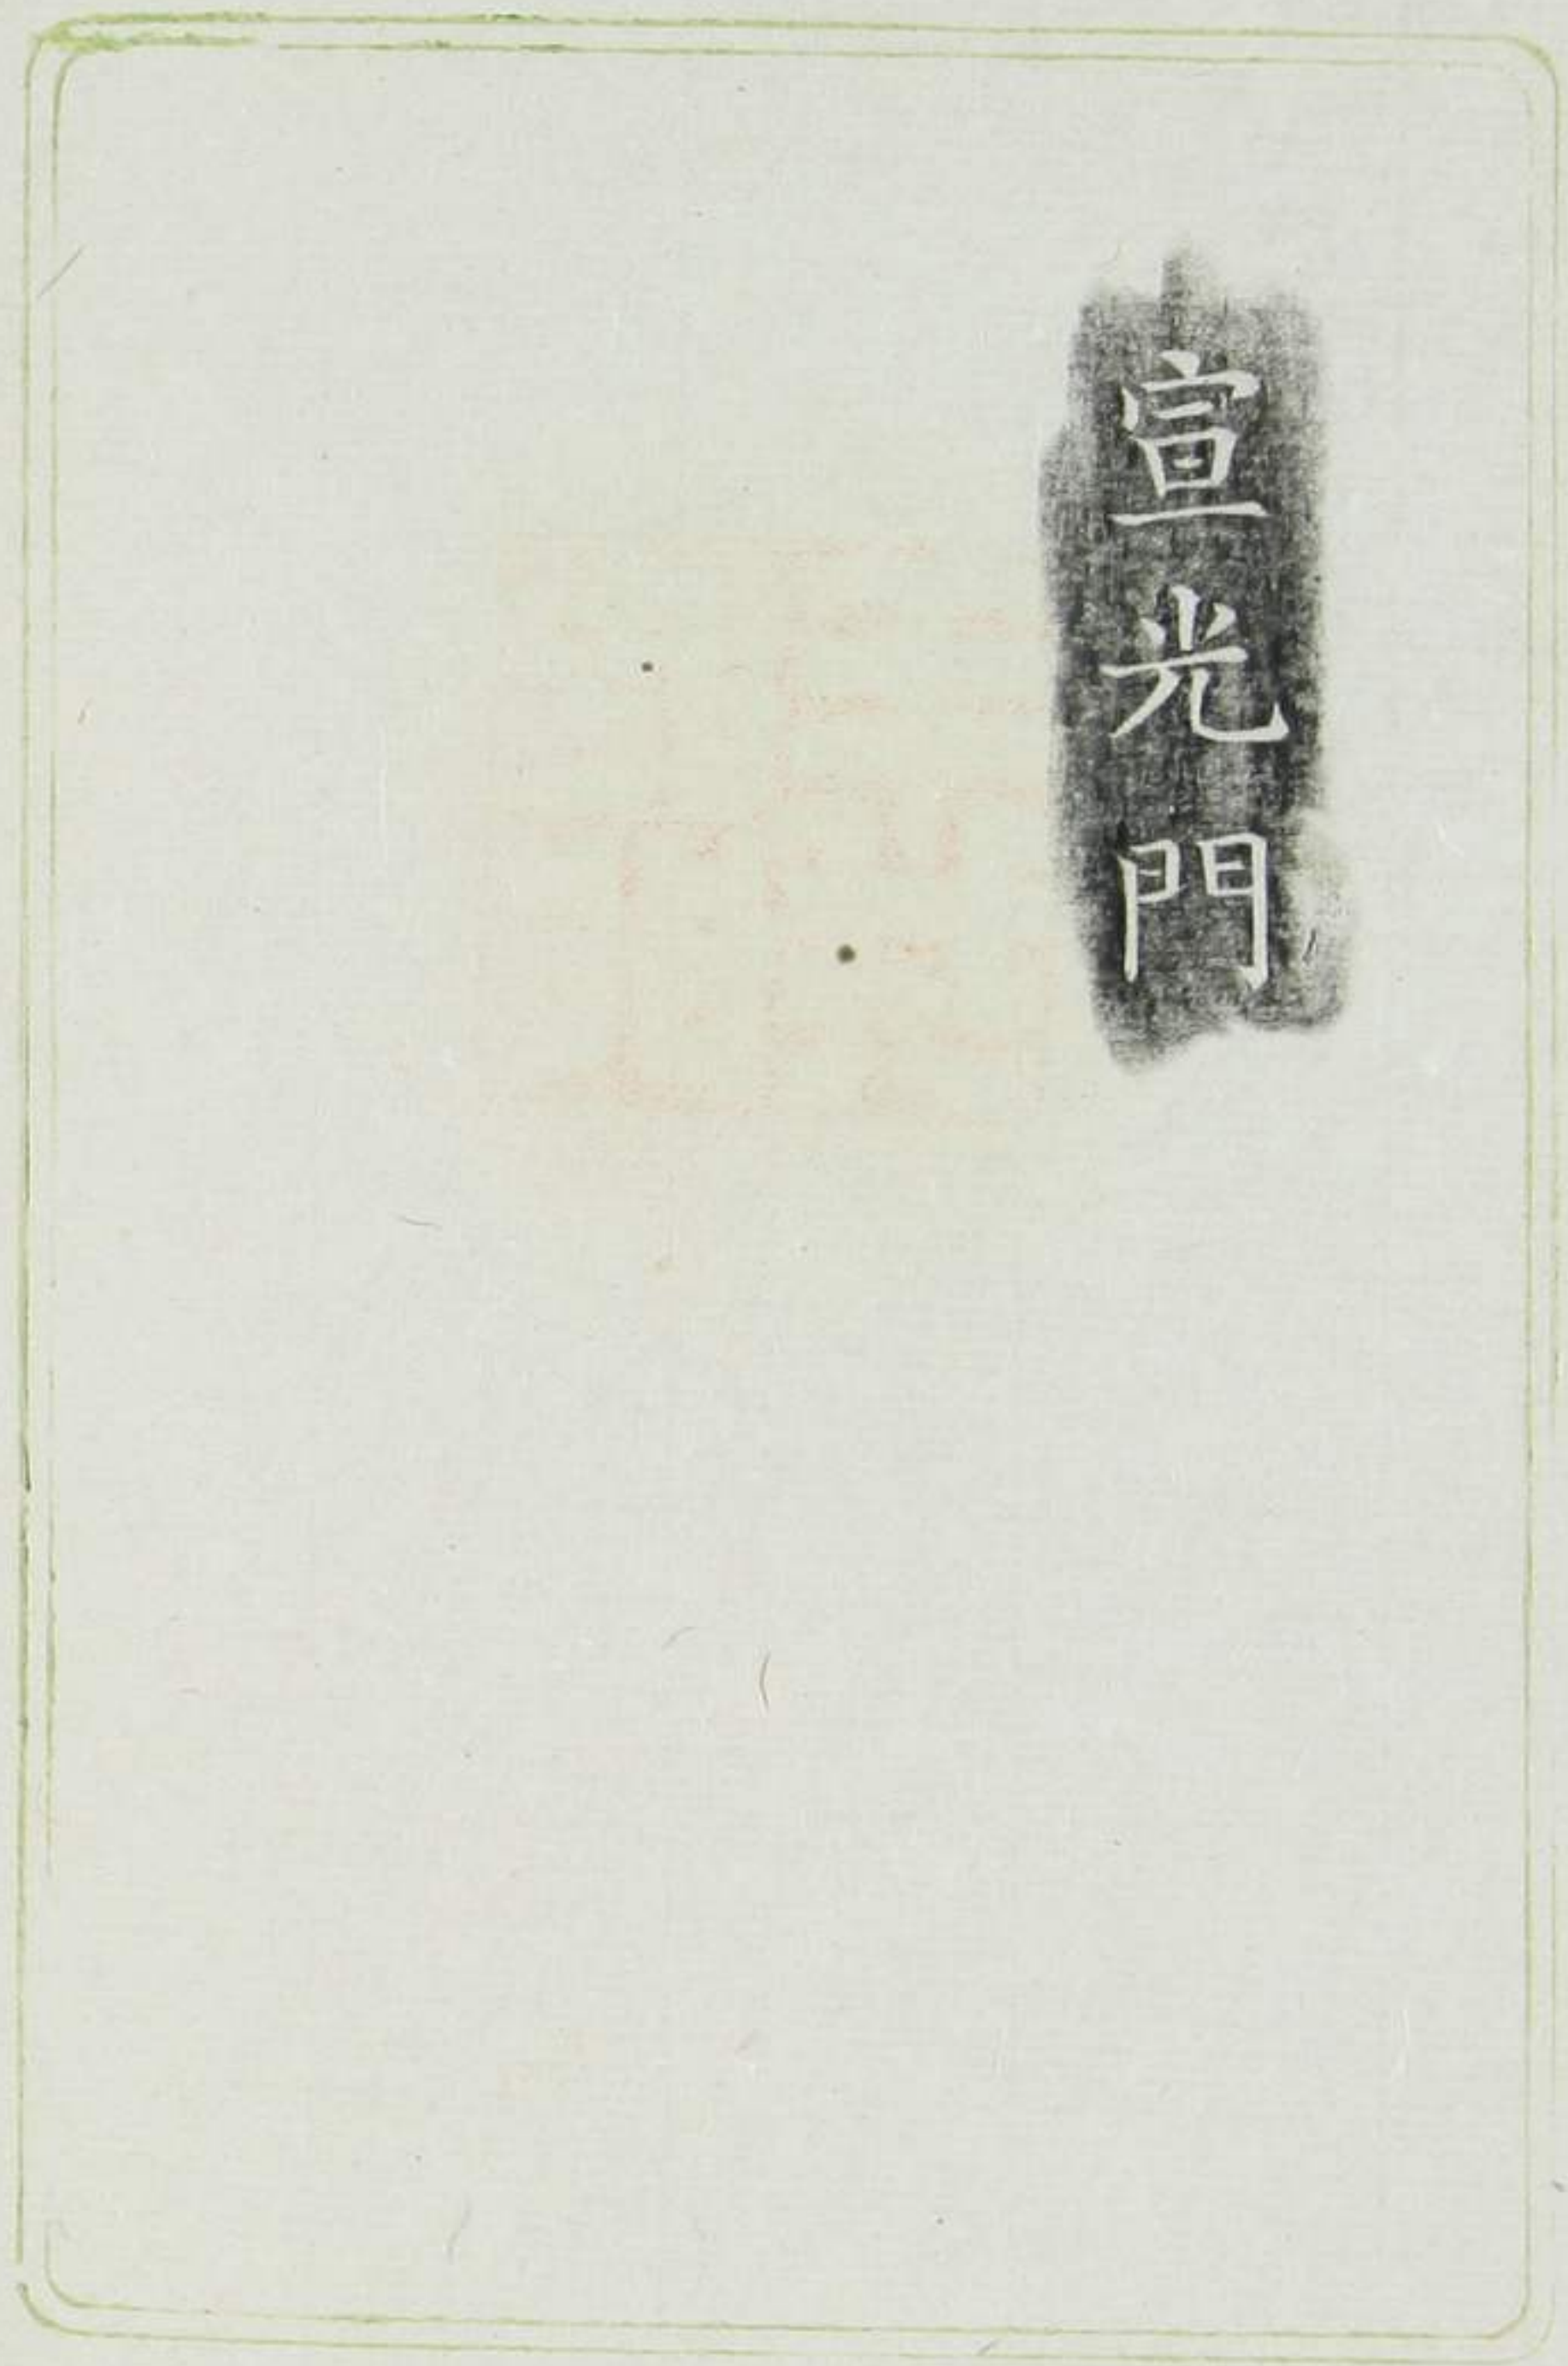 宣光門